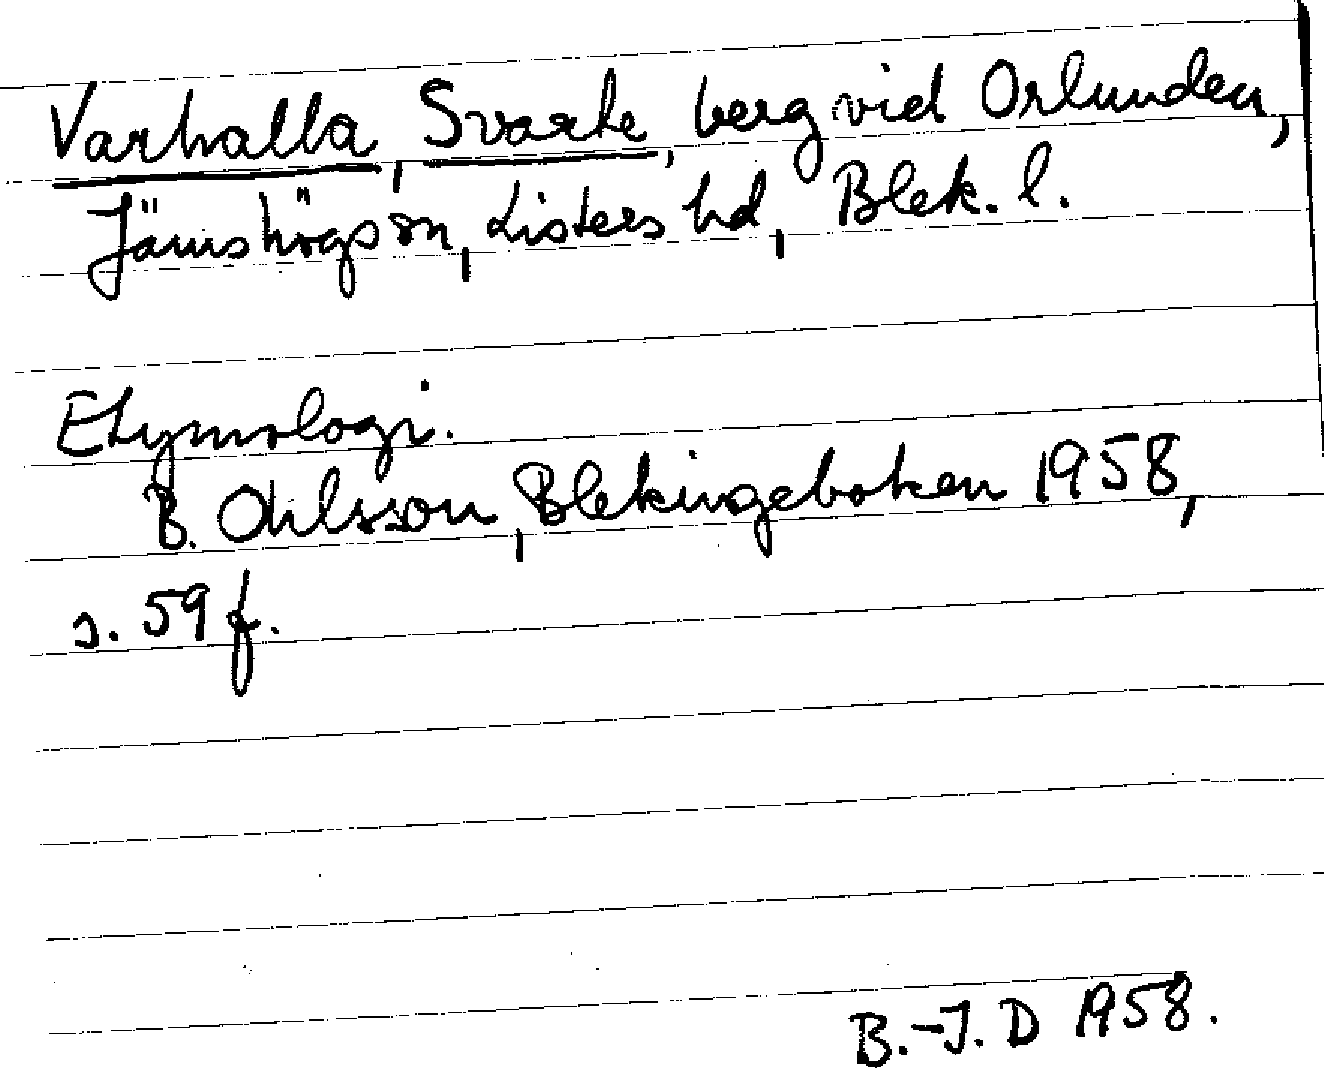 Varhalla, Svarte, berg vid Orlunden,
Jämshögs sn, Listers hd, Blek. l.
Etymologi.
B. Ohlsson, Blekingeboken 1958,
s. 59 f.
B.-J. D 1958.